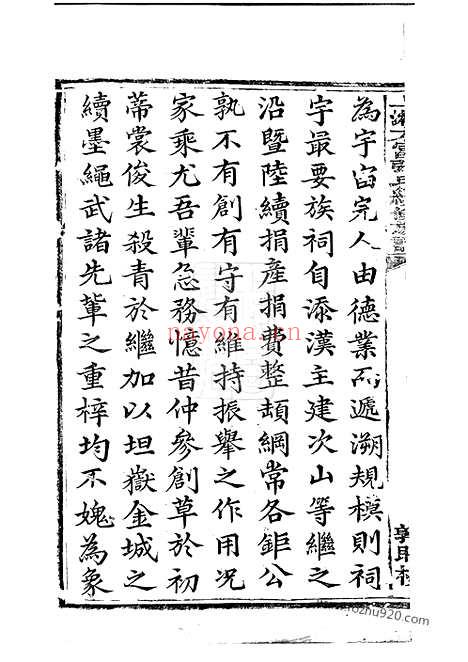 為宇宙完人由德業而遞溯規模則祠
宇最要族祠自添漢主建次山等繼之
沿暨陸續捐產捐費整頓綱常各鉅公
孰不有創有守有維持振舉之作用况
家乘尤吾輩急務憶昔仲參創草於初
蒂裳俊生殺青於繼加以坦嶽金城之
續墨繩武諸先輩之重梓均不媿為象
nayona.cn
zhuju920.com